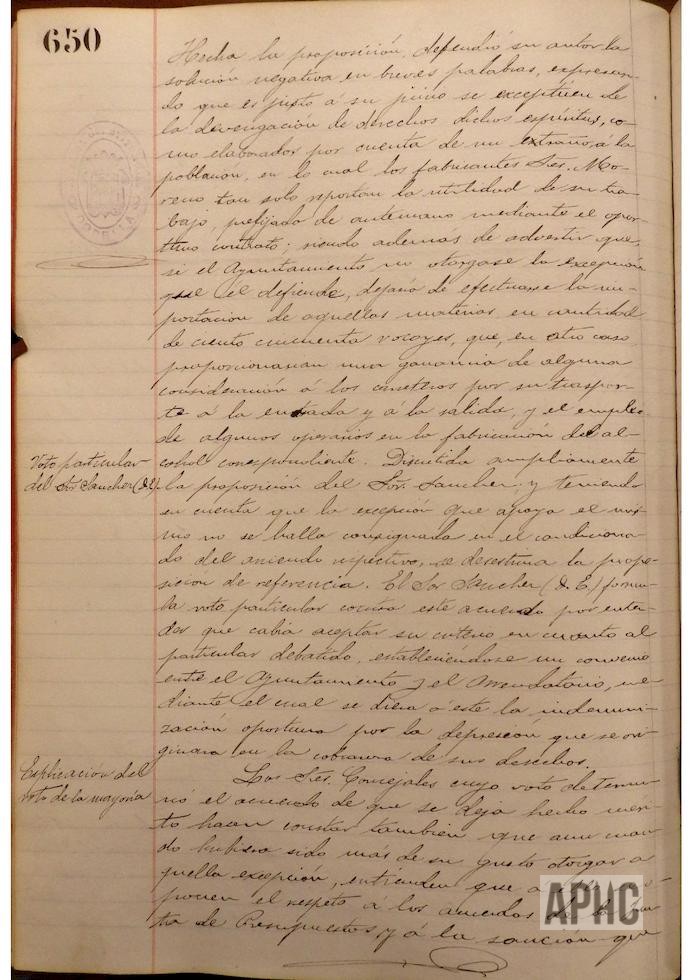 650
Hecha la proposición, defendió su autor la
solución negativa en breves palabras, expresan-
do que es justo á su juicio se exceptúen de
la devengación de derechos dichos espíritus, co-
mo elaborados por cuenta de un extraño á la
población, en lo cual los fabricantes Sres. Mo-
reno tan solo reportan la utilidad de su tra-
bajo, prefijado de antemano mediante el opor-
tuno contrato; siendo además de advertir que,
si el Ayuntamiento no otorgase la excepción
que él defiende, dejaría de efectuarse la im-
portación de aquellas materias, en cantidad
de ciento cincuenta vocoyes, que, en otro caso
proporcionarian una ganancia de alguna
consideración á los carreteros por su traspor-
te á la entrada y á la salida, y el empleo
de algunos operarios en la fabricación del al-
cohol correspondiente. Discutida ampliamente
Voto particular
del Sor Sanchez (D. E.)
la proposición del Sor. Sanchez, y teniendo
en cuenta que la excepción que apoya el mis-
mo no se halla consignada en el condiciona-
do del arriendo respectivo, se desestima la propo-
sición de referencia. El Sor Sanchez (D. E.) formu-
la voto particular contra este acuerdo por enten-
der que cabia aceptar su criterio en cuanto al
particular debatido, estableciéndose un convenio
entre el Ayuntamiento y el Arrendatario, me-
diante el cual se diera á este la indemni-
zación oportuna por la depresión que se ori-
ginara en la cobranza de sus derechos.
Explicación del
voto de la mayoría
Los Sres. Concejales cuyo voto determi-
nó el acuerdo de que se deja hecho méri-
to hacen constar también que aun cuan-
do hubiera sido más de su gusto otorgar a
quella excepción, entienden que á ello
ponen el respeto á los acuerdos de la Jun-
ta de Presupuestos y á la sanción que
APHC